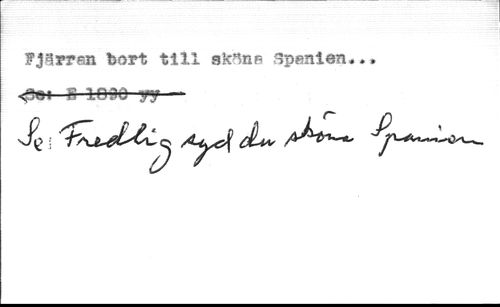 Fjärran bort till sköna Spanien...
Se: E 1890 yy
Se: Fredlig syd du sköna Spanien